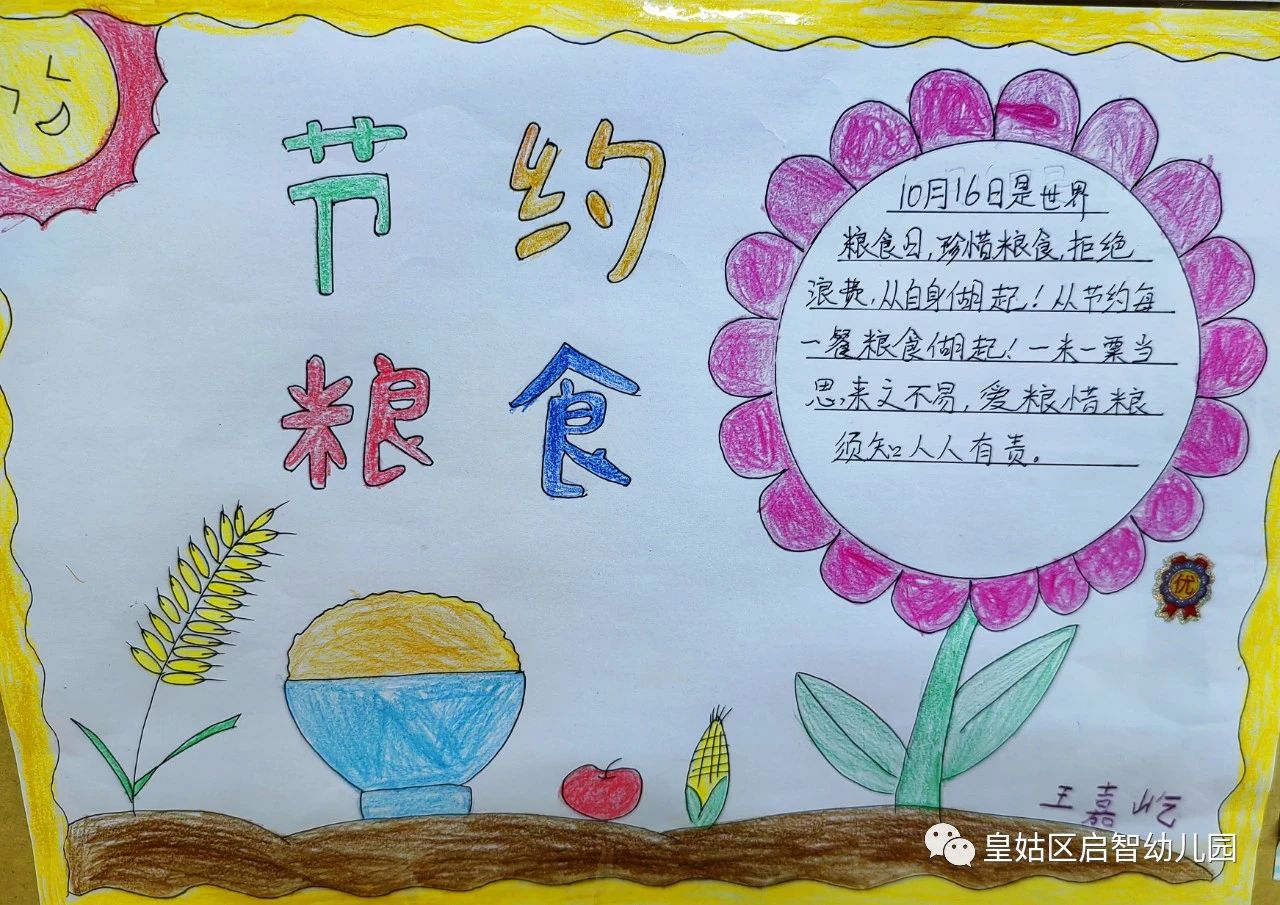 节约
粮食
10月16日是世界
粮食日,珍惜粮食,拒绝
浪费,从自身做起!从节约每
一餐粮食做起!一米一粟当
思,来之不易,爱粮惜粮
须知人人有责。
优
王嘉屹
皇姑区启智幼儿园